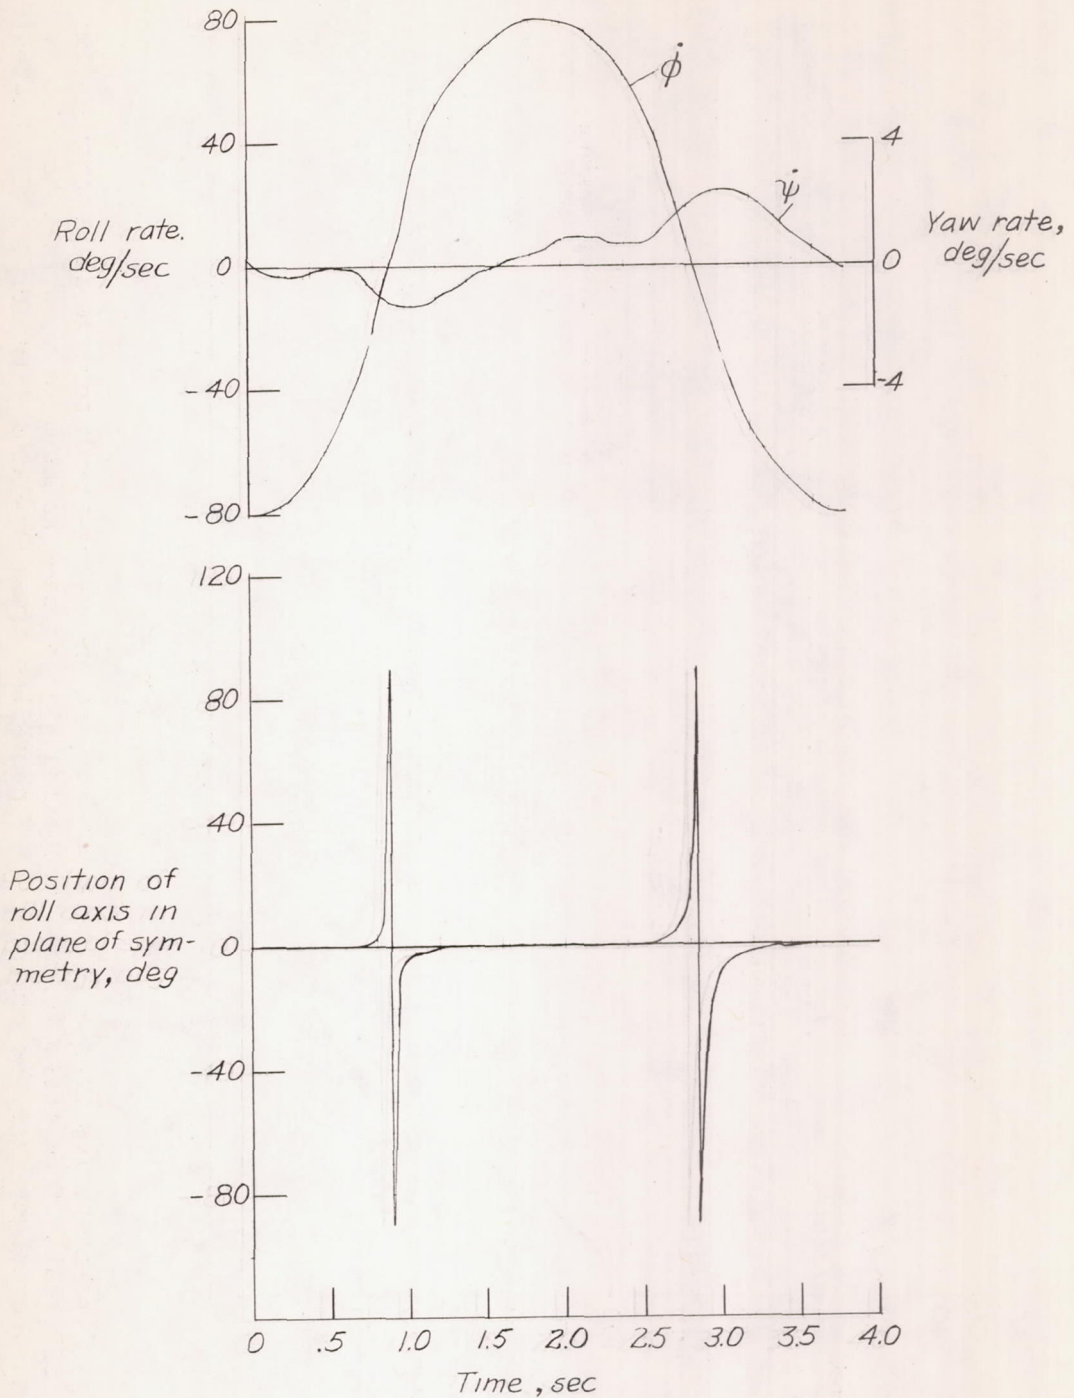 80
φ̇
40
4
ψ̇
Roll rate.
deg/sec
Yaw rate,
deg/sec
0
0
-40
-4
-80
120
80
40
Position of
roll axis in
plane of sym-
metry, deg
0
-40
-80
0 .5 1.0 1.5 2.0 2.5 3.0 3.5 4.0
Time, sec